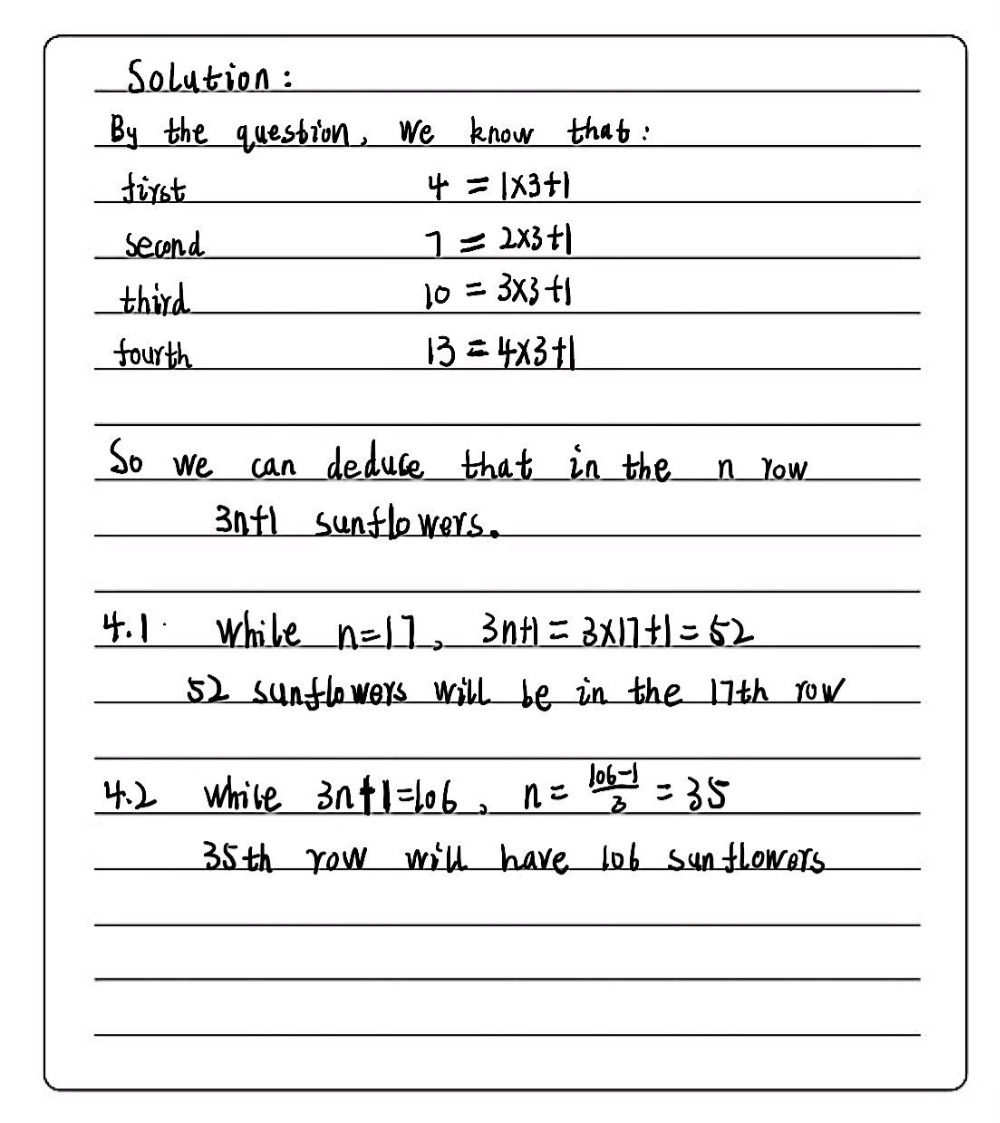 Solution:
By the question, We know that:
first 4 = 1×3+1
second 7 = 2×3+1
third 10 = 3×3+1
fourth 13 = 4×3+1
So we can deduce that in the n row
3n+1 sunflowers.
4.1. While n=17, 3n+1 = 3×17+1 = 52
52 sunflowers will be in the 17th row
4.2 While 3n+1=106, n = \frac{106-1}{3} = 35
35th row will have 106 sunflowers